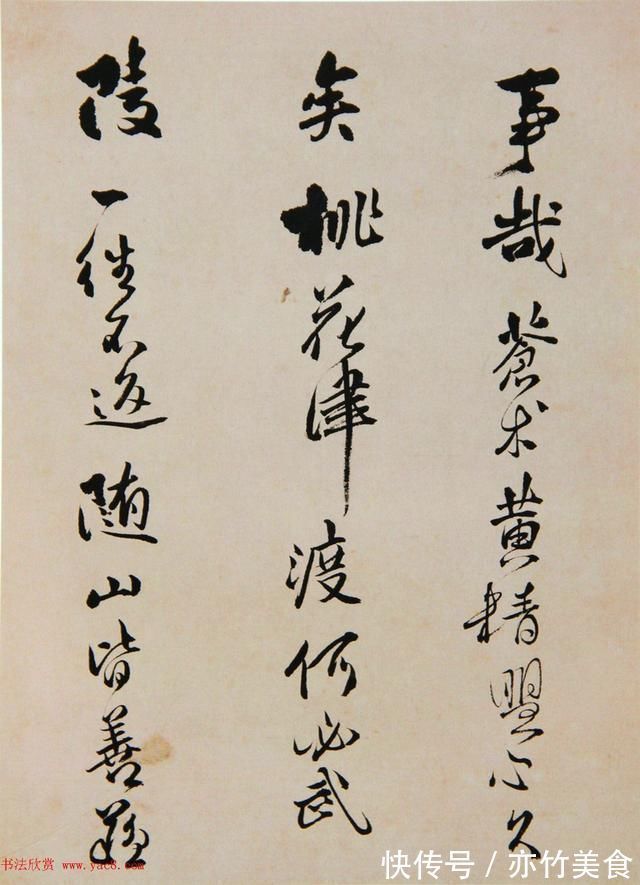 事哉蒼术黄精盟心久
矣桃花津渡何必武
陵一往不返随山皆善
书法欣赏 www.yac8.com
快传号／亦竹美食